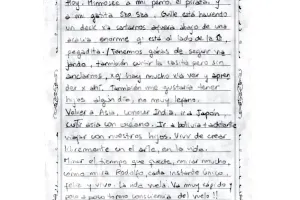 Hoy. Mimosee a mi perro, el pirata, y
a mi gatita Sra Sra. Guille está haciendo
un deck y saltaron afuera abajo de una
araña enorme y está al lado de la O,
pegadita. / Tenemos ganas de seguir via
jando, también cuidar la casita pero sin
anclarnos, hay mucho x ver y apren
der x ahí. También me gustaría tener
hijos algún día, no muy lejano.
Volver a Asia, conocer India. Ir a Japón,
Ir a Bolivia
viajar con nuestros hijos. Vivir de crear
libremente en el arte, en la vida.
Mirar el tiempo que puede, mirar mucho,
como mira Rodolfo, cada instante único,
feliz y vivo. La vida vuela. Va muy rápido y
poco a poco tomo consciencia del vuelo!!